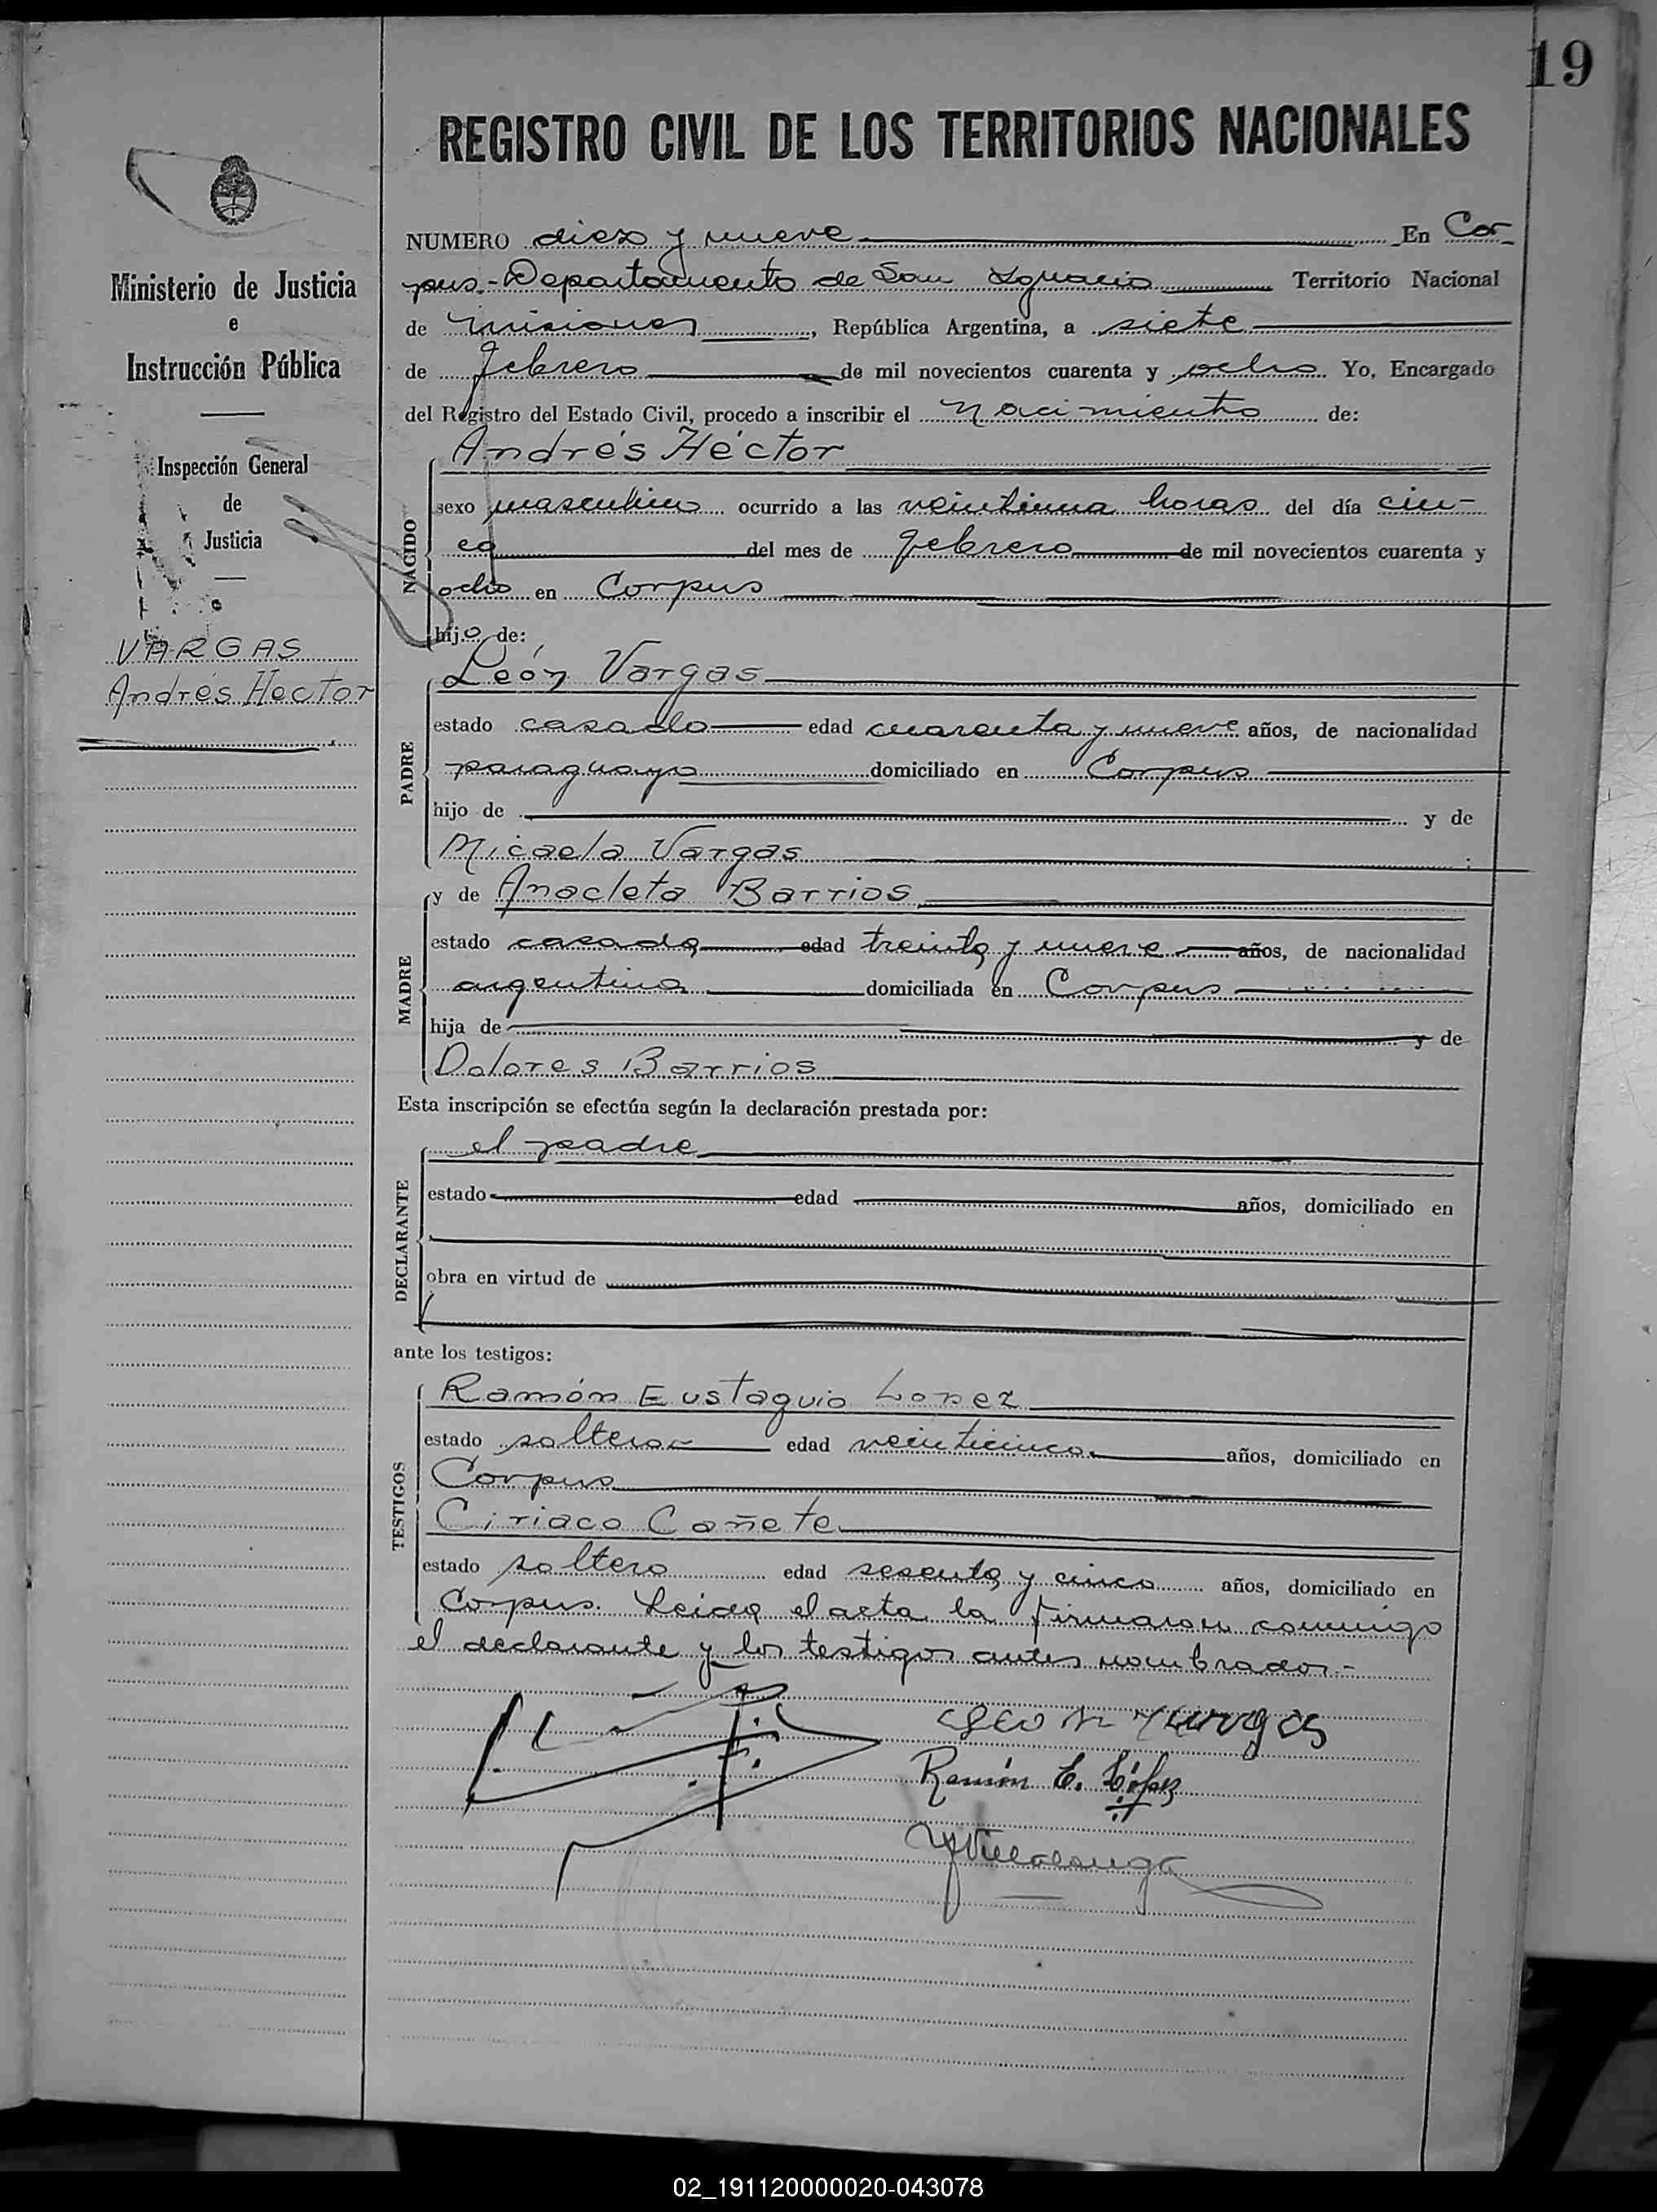 19
REGISTRO CIVIL DE LOS TERRITORIOS NACIONALES
Ministerio de Justicia
e
Instrucción Pública
Inspección General
de
Justicia
VARGAS
Andrés Hector
NUMERO diez y nueve En Cor-
pus.-Departamento de San Ignacio Territorio Nacional
de Misiones, República Argentina, a siete
de febrero de mil novecientos cuarenta y ocho Yo, Encargado
del Registro del Estado Civil, procedo a inscribir el nacimiento de:
NACIDO
Andrés Héctor
sexo masculino ocurrido a las veintiuna horas del día cin-
co del mes de febrero de mil novecientos cuarenta y
ocho en Corpus
hijo de:
PADRE
León Vargas
estado casado edad cuarenta y nueve años, de nacionalidad
paraguayo domiciliado en Corpus
hijo de y de
Micaela Vargas
MADRE
y de Anacleta Barrios
estado casada edad treinta y nueve años, de nacionalidad
argentina domiciliada en Corpus
hija de y de
Dolores Barrios
Esta inscripción se efectúa según la declaración prestada por:
DECLARANTE
el padre
estado edad años, domiciliado en
obra en virtud de
ante los testigos:
TESTIGOS
Ramón Eustaquio Lopez
estado soltero edad veinticinco años, domiciliado en
Corpus
Ciriaco Cañete
estado soltero edad sesenta y cinco años, domiciliado en
Corpus. Leida el acta la firmaron conmigo
el declarante y los testigos antes nombrados.-
Leon Vargas
Ramón E. López
02_191120000020-043078